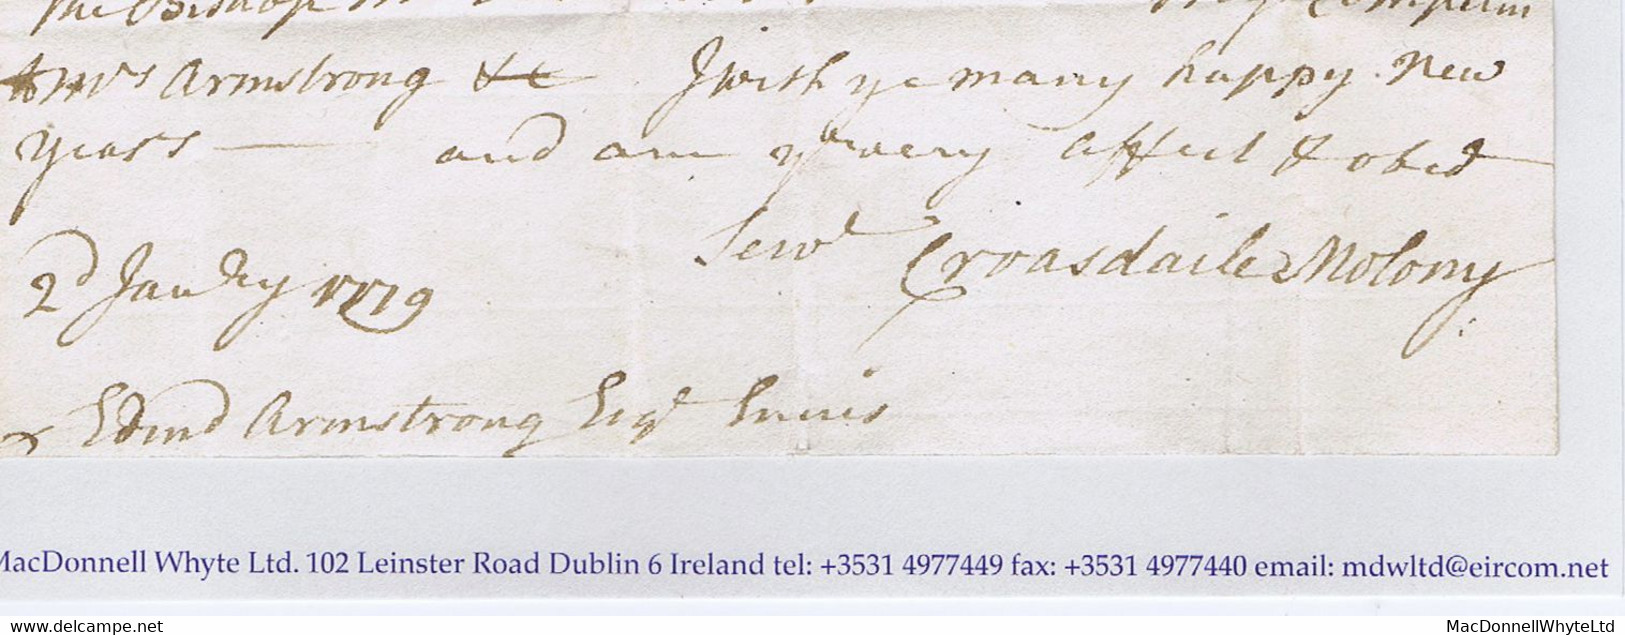 the Bishop
& Mrs Armstrong &c I wish ye many happy New
years — and am yr very affect & obed
Servt Croasdaile Molony
2d Janury 1779
Edmd Armstrong Esqr Ennis
MacDonnell Whyte Ltd. 102 Leinster Road Dublin 6 Ireland tel: +3531 4977449 fax: +3531 4977440 email: mdwltd@eircom.net
www.delcampe.net MacDonnellWhyteLtd